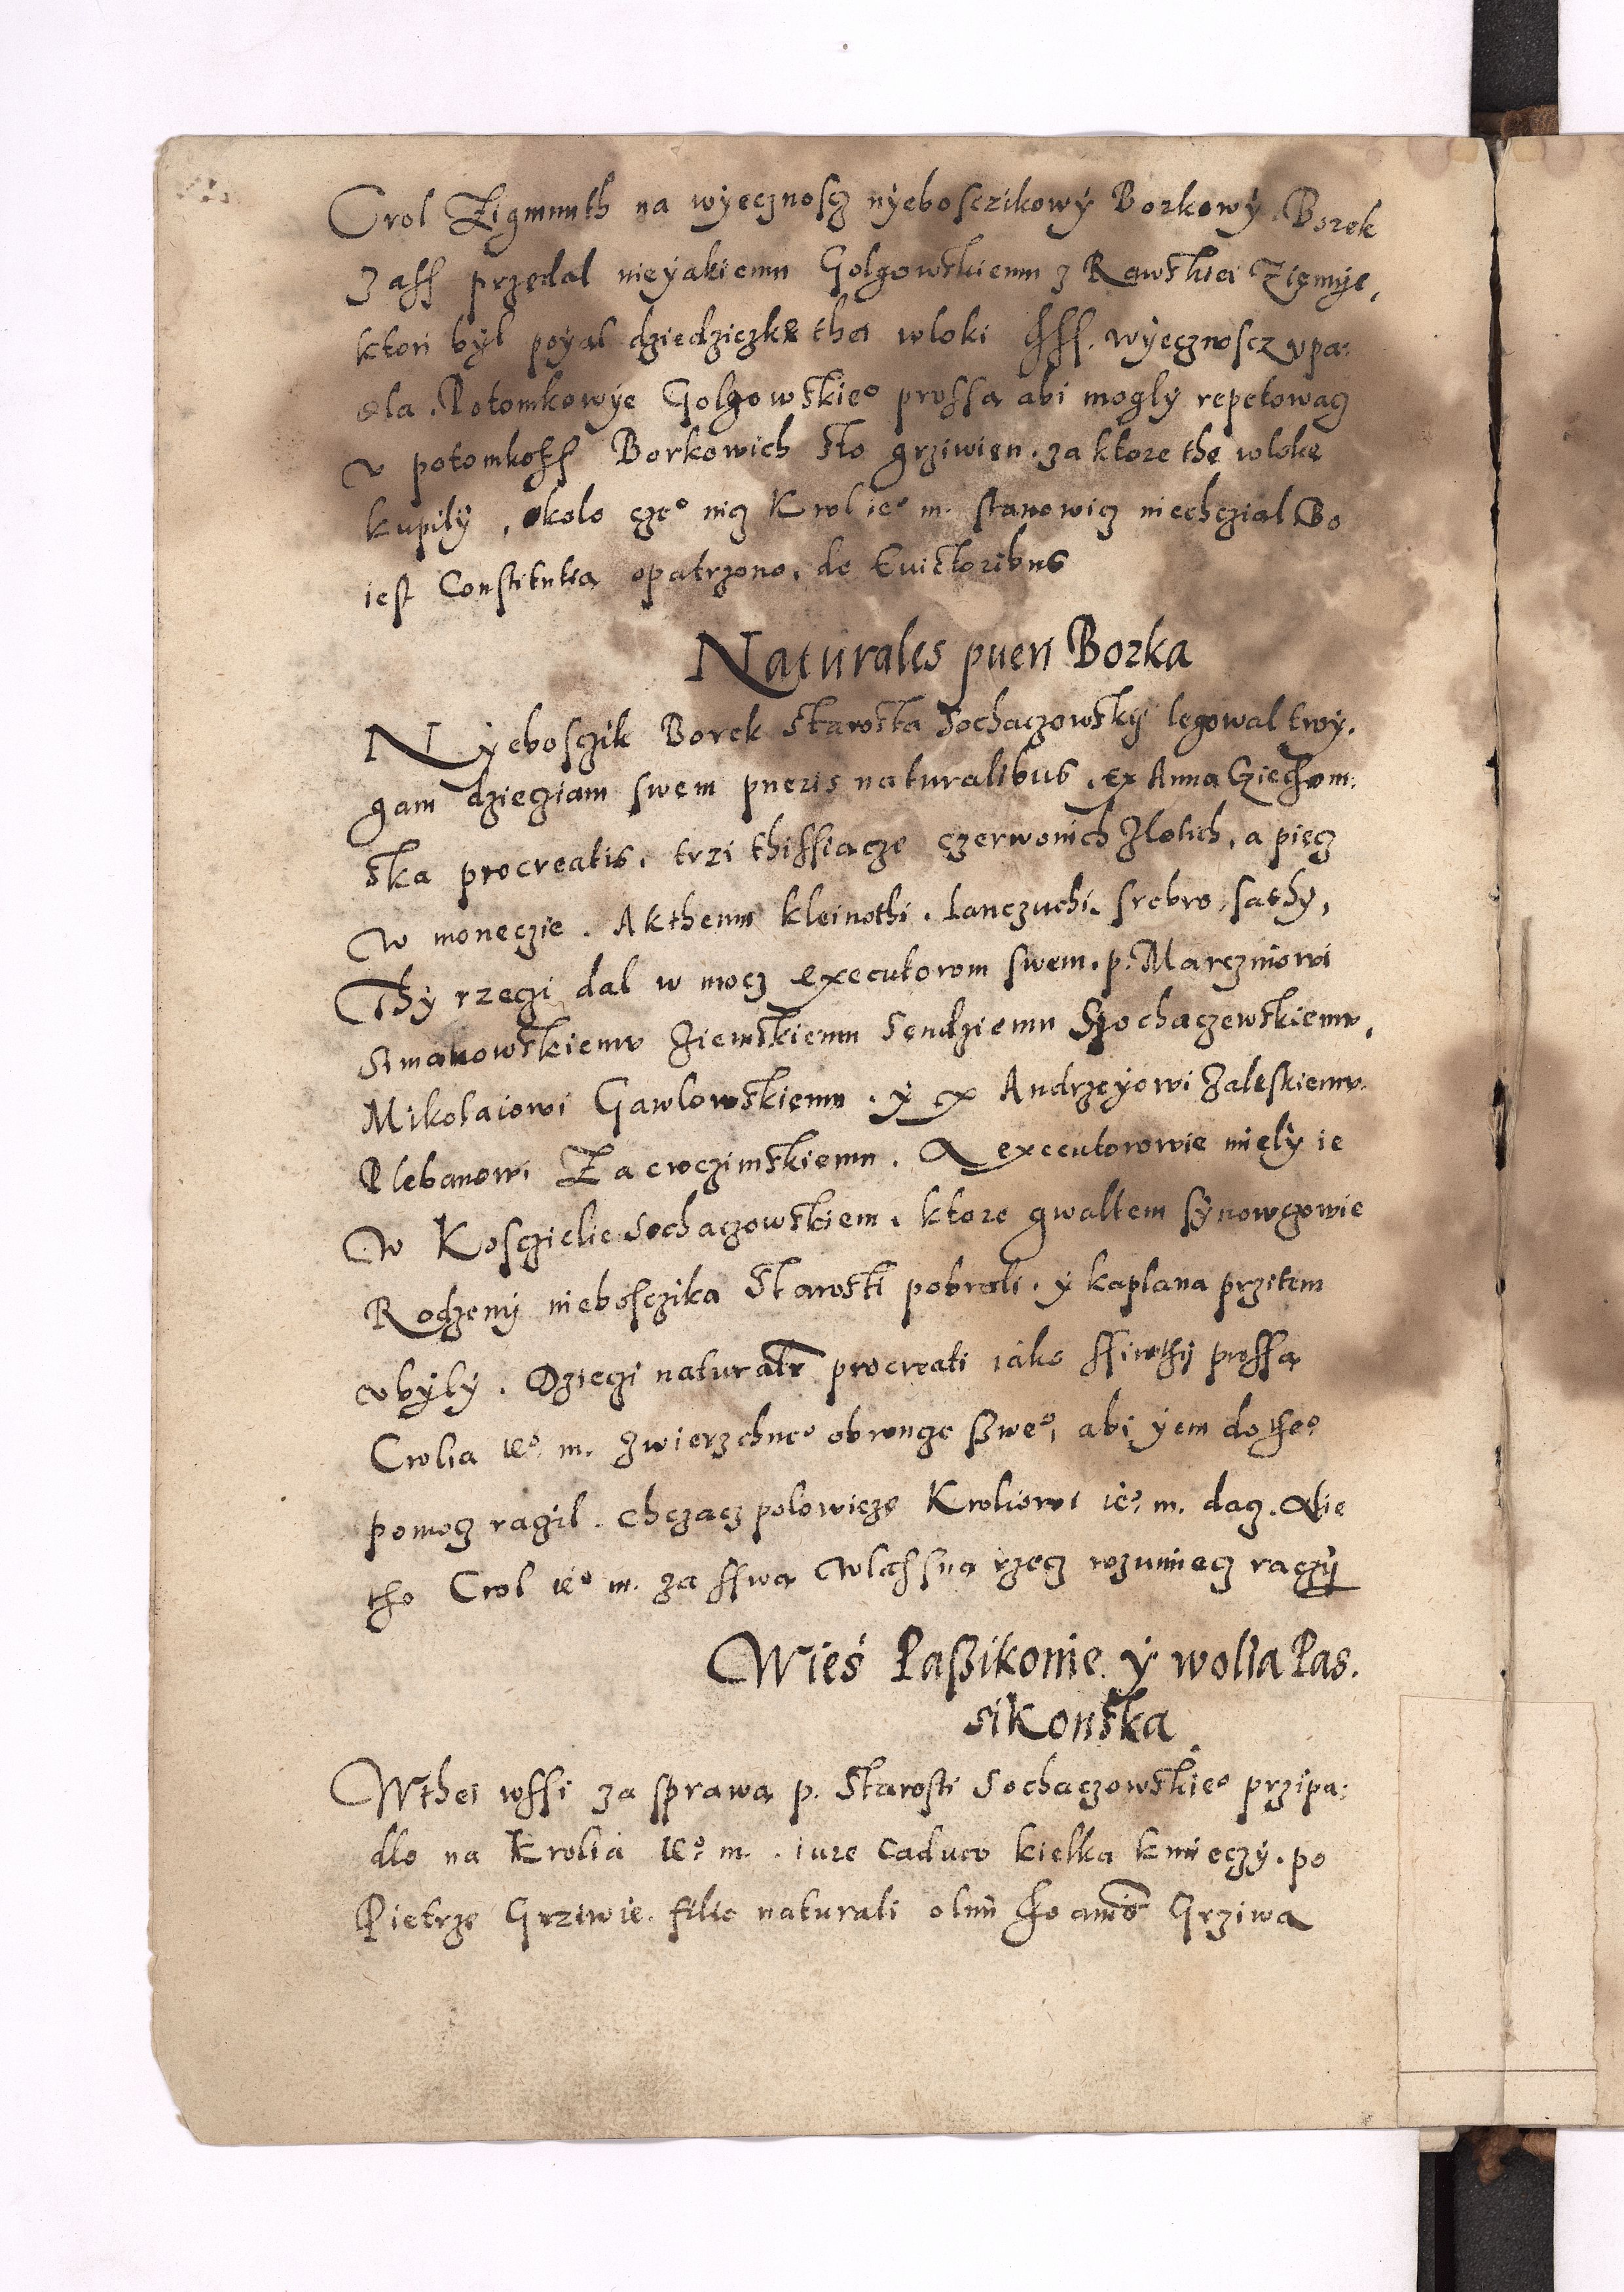 Crol Zigmunth na wyecznoscz nyeboscziko­wy Borkowy. Borek
zass przedal nieyakiemu Golgowskiemu z Rawskiei Ziemye,
ktori byl poyal dziedziczke thei wloki wyecznoscz vpa:
dla. Potomkowye Golgowskie° prossa abi mogly repetowacz
v potomkoff Borkowich sto grziwien. za ktore the wloke
kupily, okolo cze° nicz Krol ie° m. stanowicz niechczial Bo
iest Constitutia opatrzono. de Euictoribus
Naturales pueri Borka
Nyeboszczik Borek Starosta Sochaczowsky legowal troy.
gam dziecziam swem pueris naturalibus. ex Anna Cziechom:
ska procreatis. trzi thissiacze czerwonich Zlotich, a piecz
w moneczie. Akthemu kleinothi. Lanczuchi. srebro, sathy,
Thy rzeczi dal w mocz executorom swem. p. Marczinowi
Simanowskiemv Ziemskiemu Sendziemu Sochaczewskiemv,
Mikolaiowi Gawlowskiemu. y x Andrzeyowi Zaleskiemv.
Plebanowi Zacroczimskiemu. A executorowie miely ie
w Kosczielie Sochaczowskiem. ktore gwaltem synowczowie
Rodzeny nieboszczika Starosti pobrali. y kaplana przitem
vbyly. Dzieczi naturalr procreati iako ssirothy prossa
Crolia ie° m. zwierzchne° obroncze swe°, abi yem dothe°
pomocz raczil. chczacz polowicze Kroliowi ie° m. dacz. Alie
tho Crol ie° m. za sswa wlassna rzecz rozumiecz raczy
Wieś Paßikonie y wolia Pas.
sikonska
Wthei wssi za sprawa p. Starosti Sochaczowskie° przipa:
dlo na Krolia ie° m. iure caduco kielka kmieczy. po
Pietrze Grziwie. filio naturali olim Joannis Grziwa